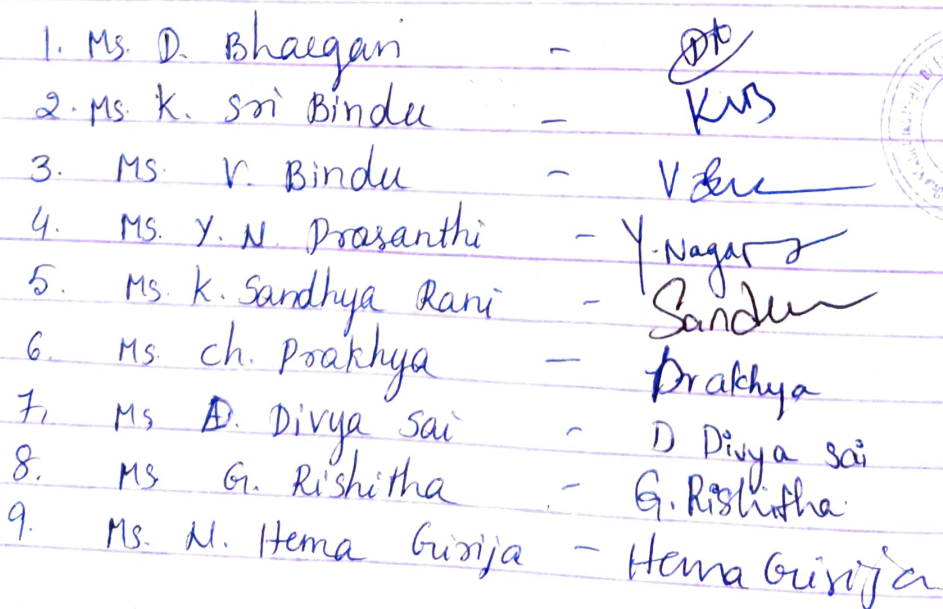 1. Ms. D. Bhaegavi -
2. Ms. K. Sri Bindu - KVB
3. Ms. V. Bindu - V
4. Ms. Y. N. Prasanthi - Y. Nagar
5. Ms. K. Sandhya Rani - Sandu
6. Ms. Ch. Prakhya - Prakhya
7. Ms D. Divya Sai - D Divya Sai
8. Ms G. Rishitha - G. Rishitha
9. Ms. N. Hema Girija - Hema Girija